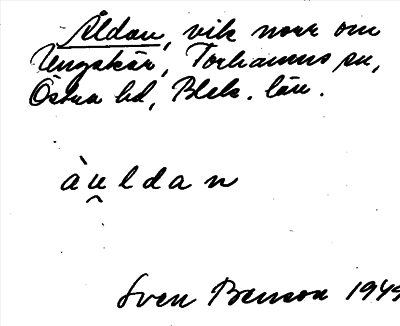 Åldan, vik norr om
Ungskär, Torhamns sn,
Östra hd, Blek. län.
àu̯ldan
Sven Benson 1949